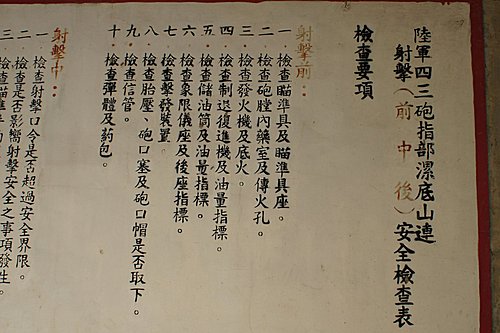 陸軍四三砲指部漯底山連
射擊(前中後)安全檢查表
檢查要項
射擊前：
一、檢查瞄準具及瞄準具座。
二、檢查砲膛內藥室及傳火孔。
三、檢查發火機及底火。
四、檢查制退復進機及油量指標。
五、檢查儲油筒及油量指標。
六、檢查象限儀座及後座指標。
七、檢查擊發裝置。
八、檢查胎壓、砲口塞及砲口帽是否取下。
九、檢查信管。
十、檢查彈體及葯包。
射擊中：
一、檢查射擊口令是否超過安全界限。
二、檢查是否影響射擊安全之事項發生。
三、檢查瞄準